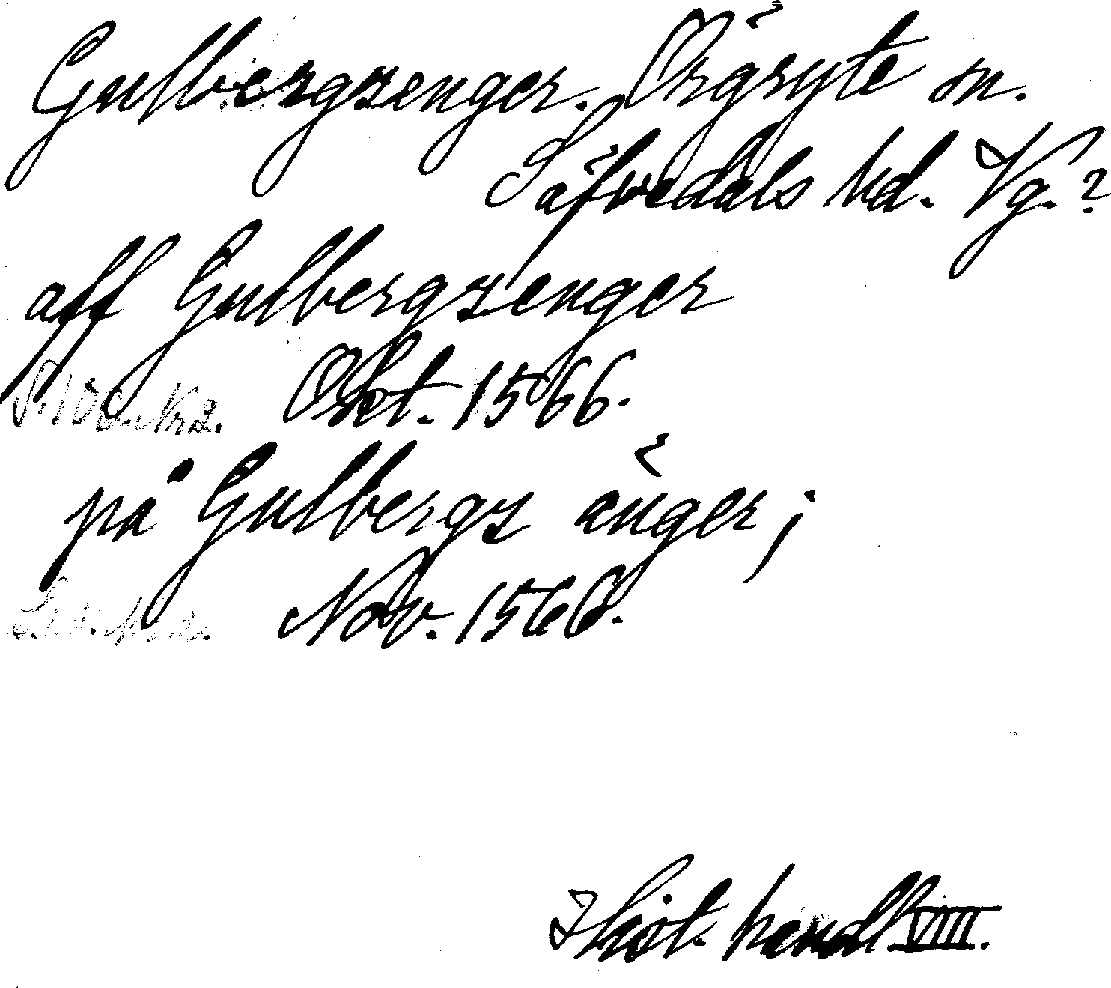 Gulbergszenger. Örgryte sn.
Säfvedals hd. Vg.?
aff Gulbergzenger
Okt. 1566.
på Gulbergz änger;
Nov. 1566.
Hist. handl VIII.